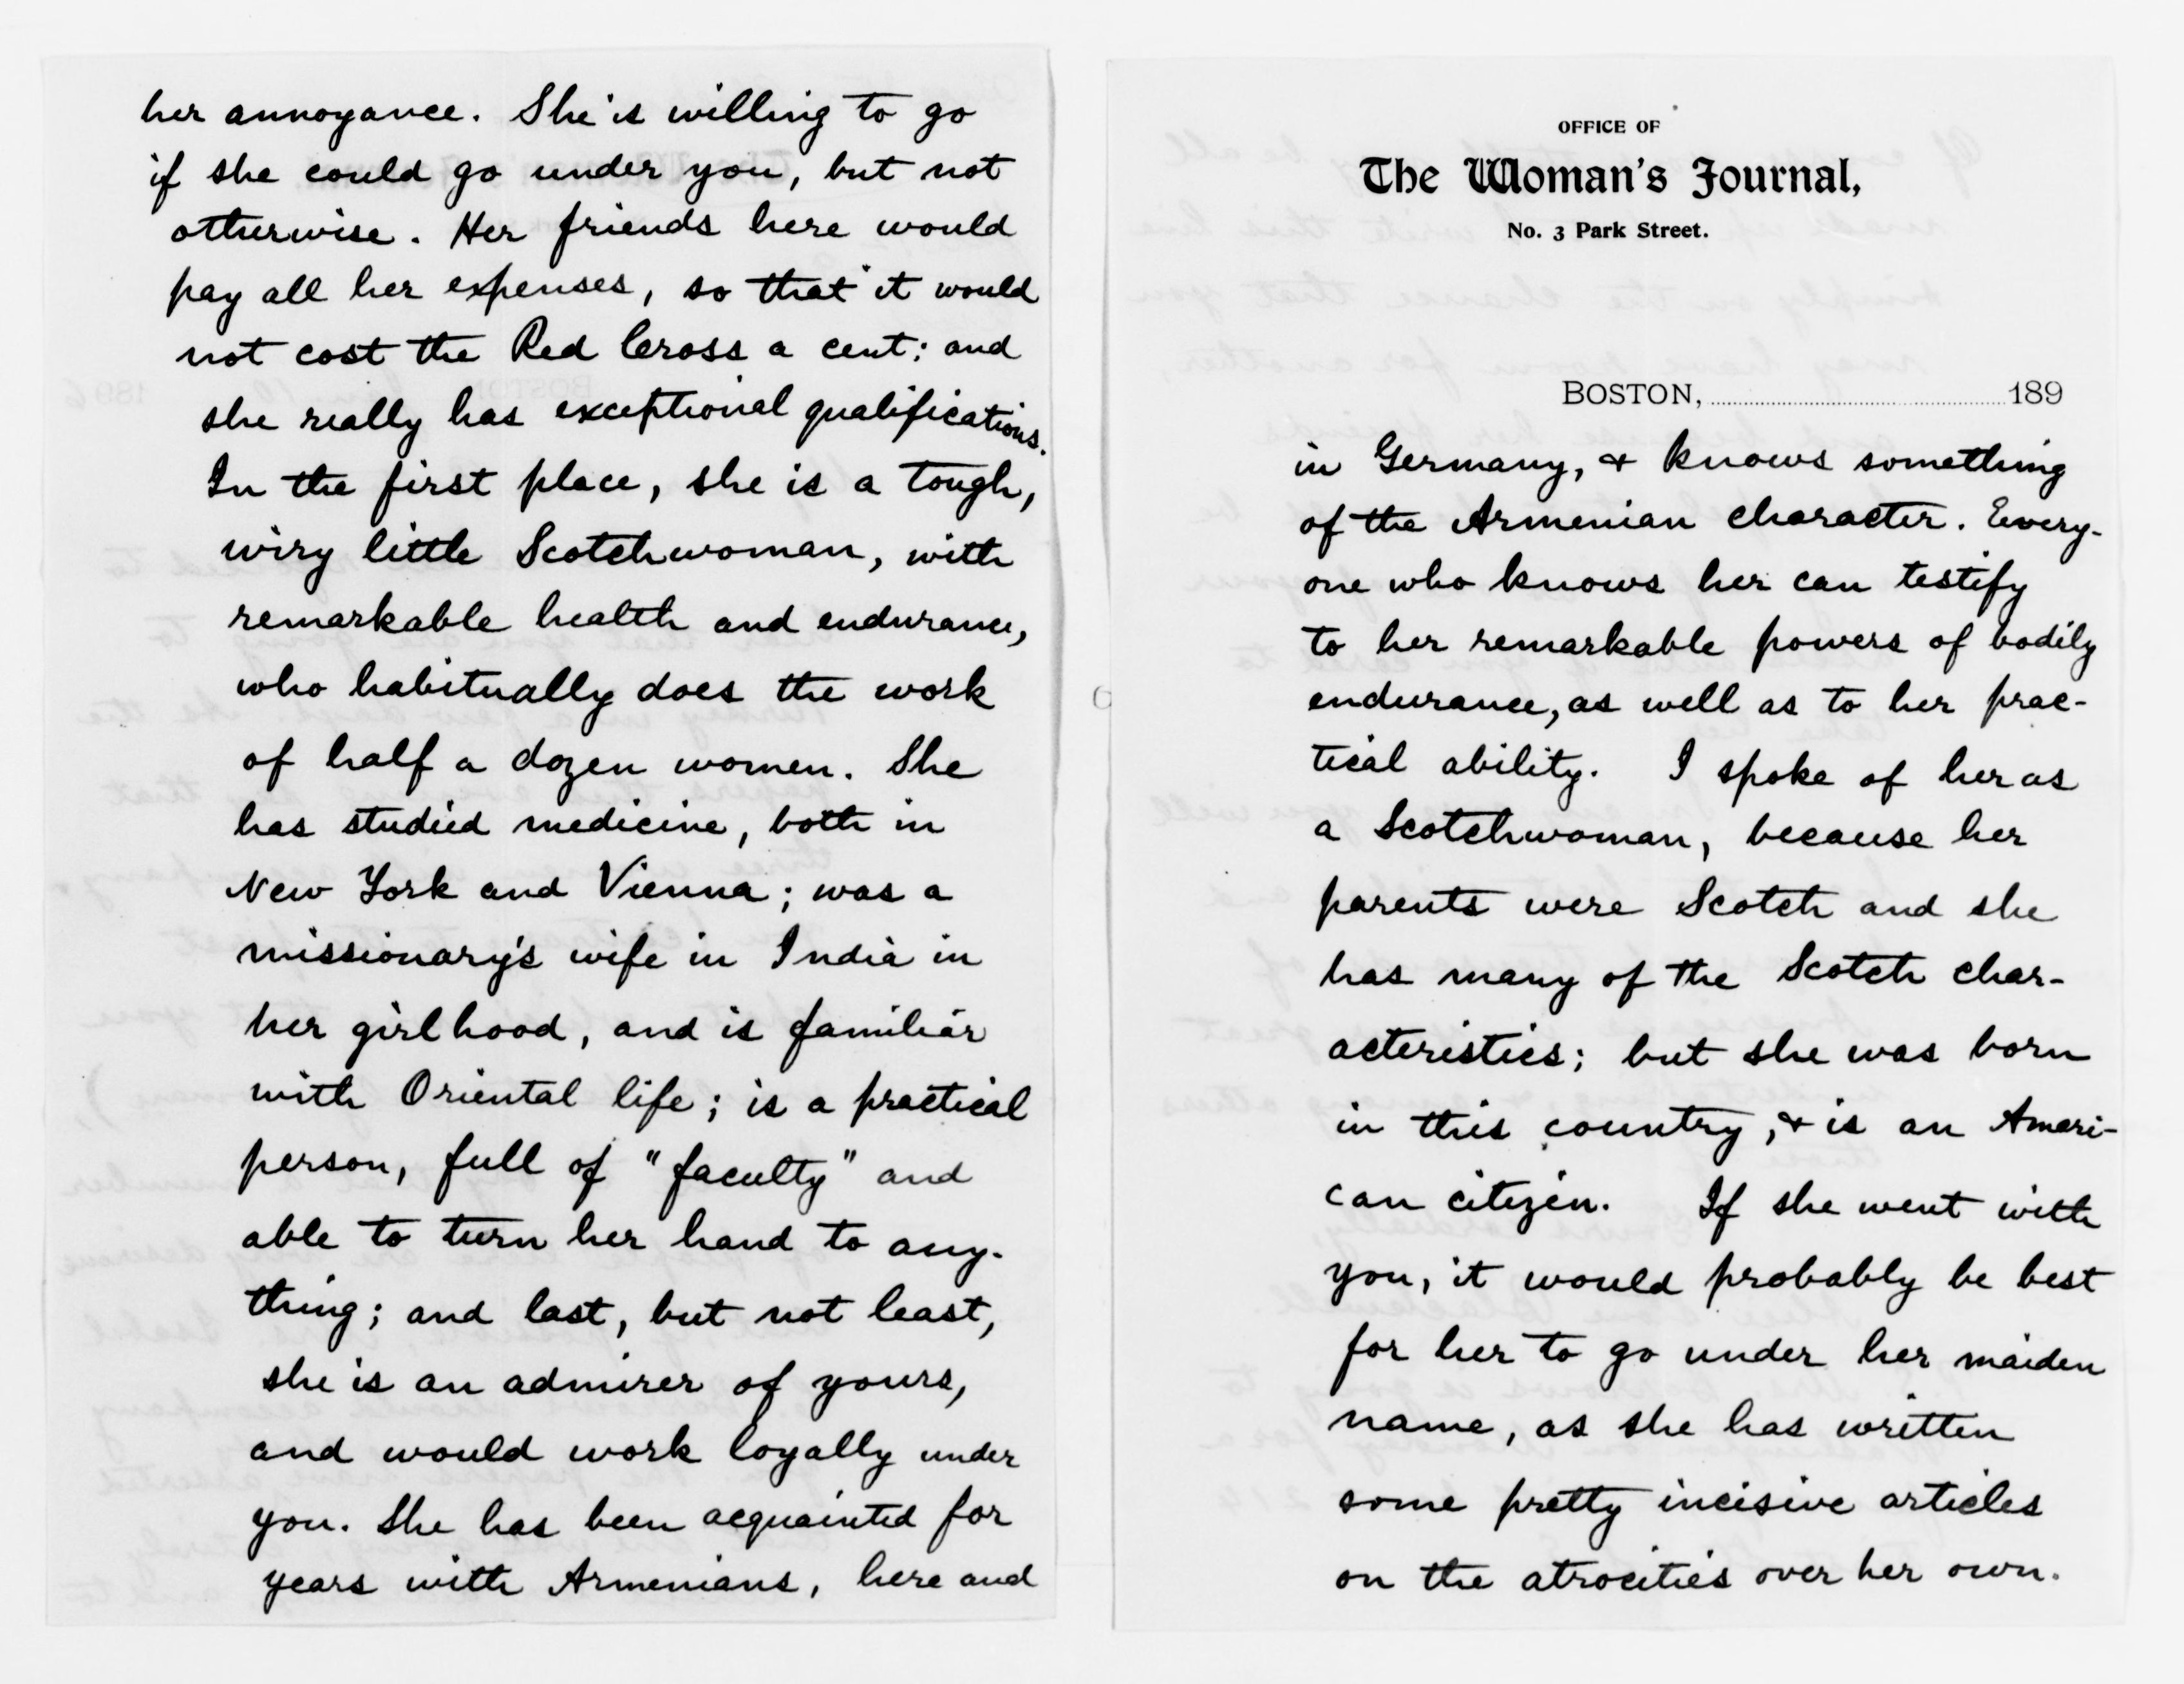 her annoyance. She is willing to go
if she could go under you, but not
otherwise. Her friends here would
pay all her expenses, so that it would
not cost the Red Cross a cent; and
she really has exceptional qualifications.
In the first place, she is a tough,
wiry little Scotchwoman, with
remarkable health and endurance,
who habitually does the work
of half a dozen women. She
has studied medicine, both in
New York and Vienna; was a
missionary's wife in India in
her girlhood, and is familiar
with Oriental life; is a practical
person, full of "faculty" and
able to turn her hand to any-
thing; and last, but not least,
she is an admirer of yours,
and would work loyally under
you. She has been acquainted for
years with Armenians, here and
OFFICE OF
The Woman's Journal,
No. 3 Park Street.
BOSTON, 189
in Germany, & knows something
of the Armenian character. Every-
one who knows her can testify
to her remarkable powers of bodily
endurance, as well as to her prac-
tical ability. I spoke of her as
a Scotchwoman, because her
parents were Scotch and she
has many of the Scotch char-
acteristics; but she was born
in this country, & is an Ameri-
can citizen. If she went with
you, it would probably be best
for her to go under her maiden
name, as she has written
some pretty incisive articles
on the atrocities over her own.